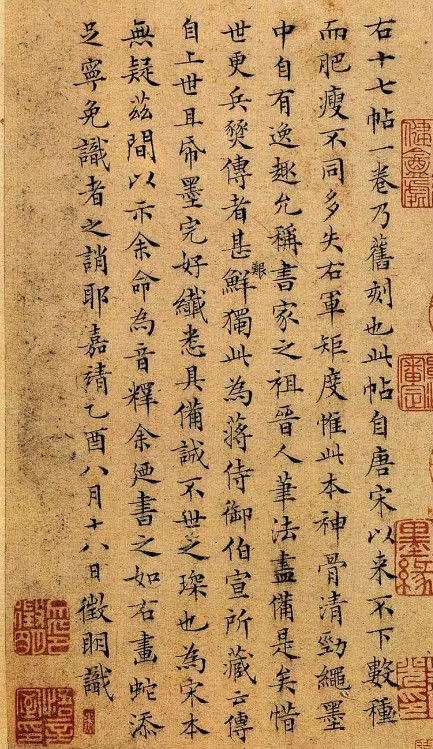 墨緣
右十七帖一卷乃舊刻也此帖自唐宋以来不下數種
而肥瘦不同多失右軍矩度惟此本神骨清勁繩墨
中自有逸趣允稱書家之祖晉人筆法盡備是矣惜
世更兵燹傳者甚鮮獨此為蔣侍御伯宣所藏云傳
自上世且帋墨完好纖悉具備誠不世之琛也為宋本
無疑茲間以示余命為音釋余廼書之如右畫蛇添
足寧免識者之誚耶嘉靖乙酉八月十八日徵明識